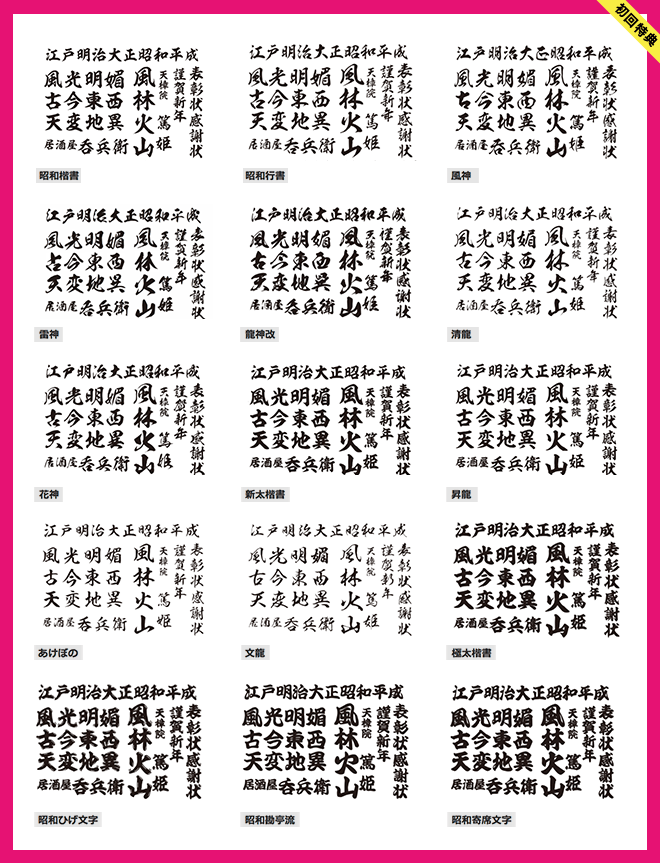 初回特典
江戸明治大正昭和平成
風光明媚
古今東西
天変地異
居酒屋呑兵衛
風林火山
天璋院 篤姫
謹賀新年
表彰状感謝状
昭和楷書
江戸明治大正昭和平成
風光明媚
古今東西
天変地異
居酒屋呑兵衛
風林火山
天璋院 篤姫
謹賀新年
表彰状感謝状
昭和行書
江戸明治大正昭和平成
風光明媚
古今東西
天変地異
居酒屋呑兵衛
風林火山
天璋院 篤姫
謹賀新年
表彰状感謝状
風神
江戸明治大正昭和平成
風光明媚
古今東西
天変地異
居酒屋呑兵衛
風林火山
天璋院 篤姫
謹賀新年
表彰状感謝状
雷神
江戸明治大正昭和平成
風光明媚
古今東西
天変地異
居酒屋呑兵衛
風林火山
天璋院 篤姫
謹賀新年
表彰状感謝状
龍神改
江戸明治大正昭和平成
風光明媚
古今東西
天変地異
居酒屋呑兵衛
風林火山
天璋院 篤姫
謹賀新年
表彰状感謝状
清龍
江戸明治大正昭和平成
風光明媚
古今東西
天変地異
居酒屋呑兵衛
風林火山
天璋院 篤姫
謹賀新年
表彰状感謝状
花神
江戸明治大正昭和平成
風光明媚
古今東西
天変地異
居酒屋呑兵衛
風林火山
天璋院 篤姫
謹賀新年
表彰状感謝状
新太楷書
江戸明治大正昭和平成
風光明媚
古今東西
天変地異
居酒屋呑兵衛
風林火山
天璋院 篤姫
謹賀新年
表彰状感謝状
昇龍
江戸明治大正昭和平成
風光明媚
古今東西
天変地異
居酒屋呑兵衛
風林火山
天璋院 篤姫
謹賀新年
表彰状感謝状
あけぼの
江戸明治大正昭和平成
風光明媚
古今東西
天変地異
居酒屋呑兵衛
風林火山
天璋院 篤姫
謹賀新年
表彰状感謝状
文龍
江戸明治大正昭和平成
風光明媚
古今東西
天変地異
居酒屋呑兵衛
風林火山
天璋院 篤姫
謹賀新年
表彰状感謝状
極太楷書
江戸明治大正昭和平成
風光明媚
古今東西
天変地異
居酒屋呑兵衛
風林火山
天璋院 篤姫
謹賀新年
表彰状感謝状
昭和ひげ文字
江戸明治大正昭和平成
風光明媚
古今東西
天変地異
居酒屋呑兵衛
風林火山
天璋院 篤姫
謹賀新年
表彰状感謝状
昭和勘亭流
江戸明治大正昭和平成
風光明媚
古今東西
天変地異
居酒屋呑兵衛
風林火山
天璋院 篤姫
謹賀新年
表彰状感謝状
昭和寄席文字